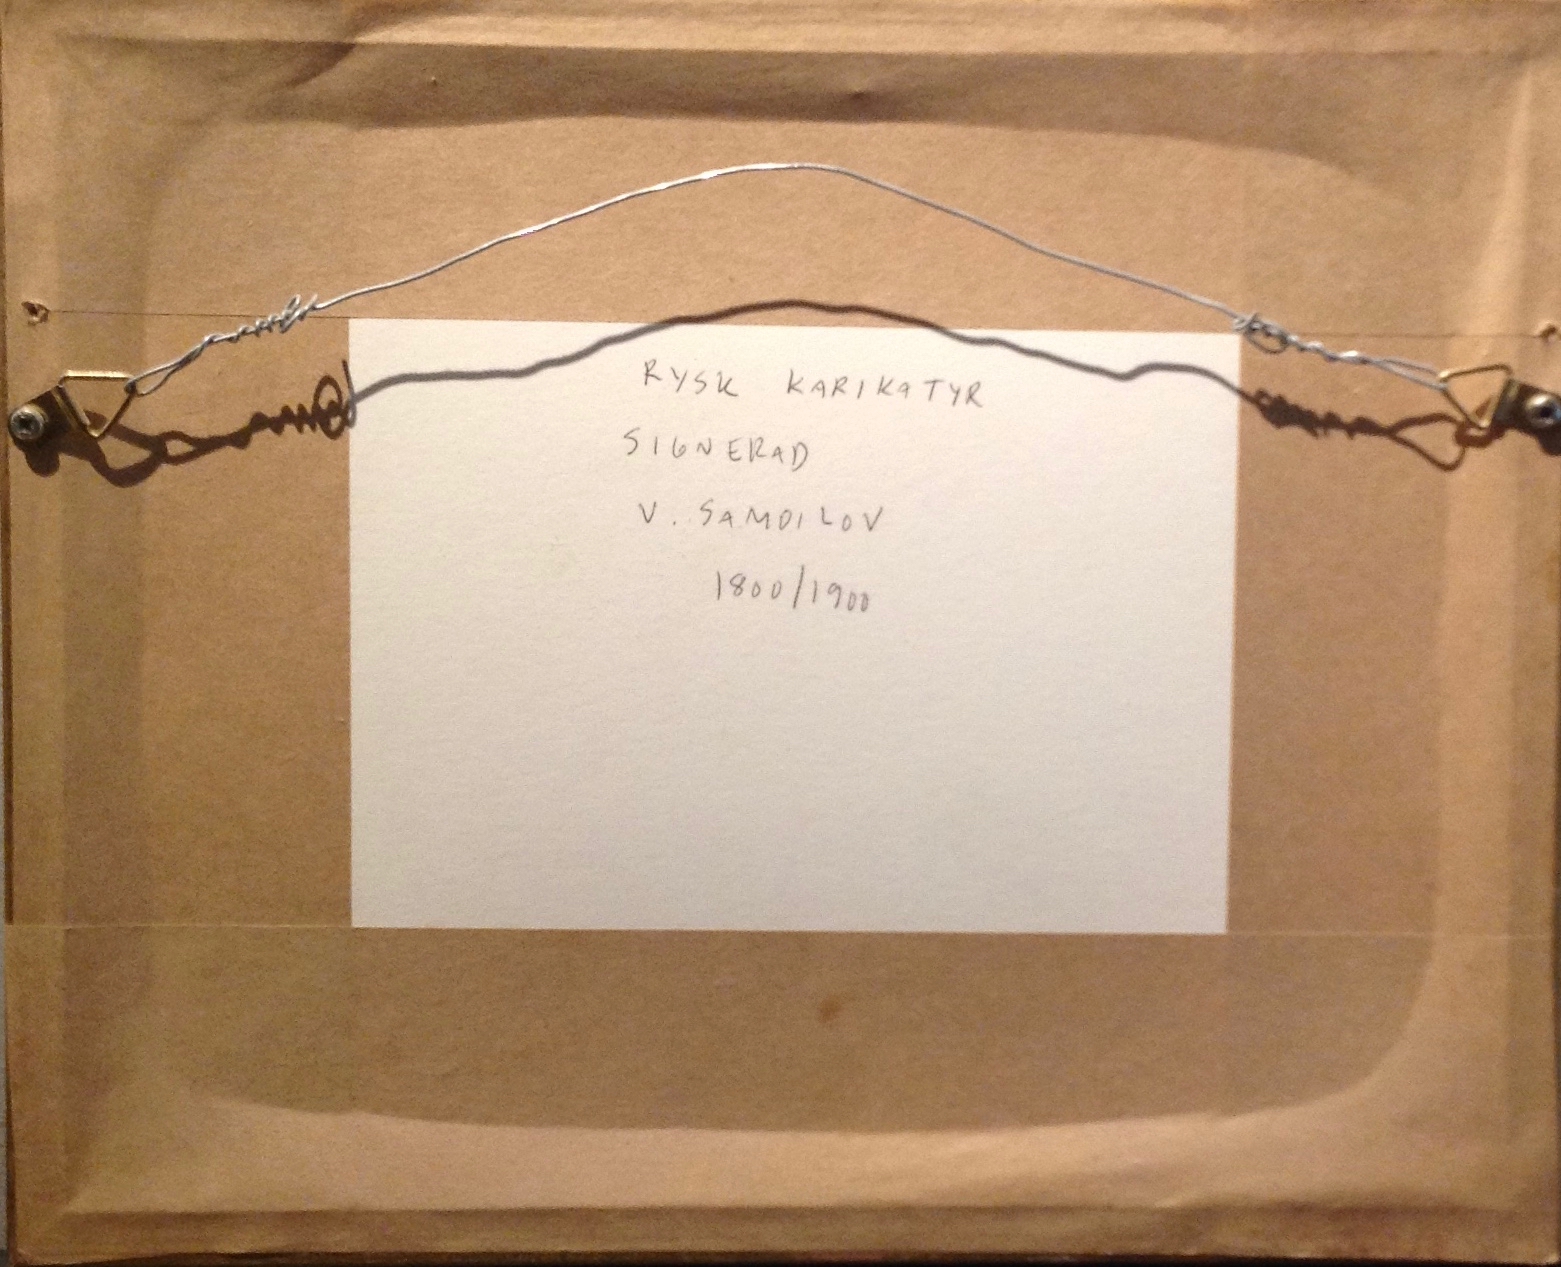 RYSK KARIKATYR
SIGNERAD
V. SAMOILOV
1800/1900